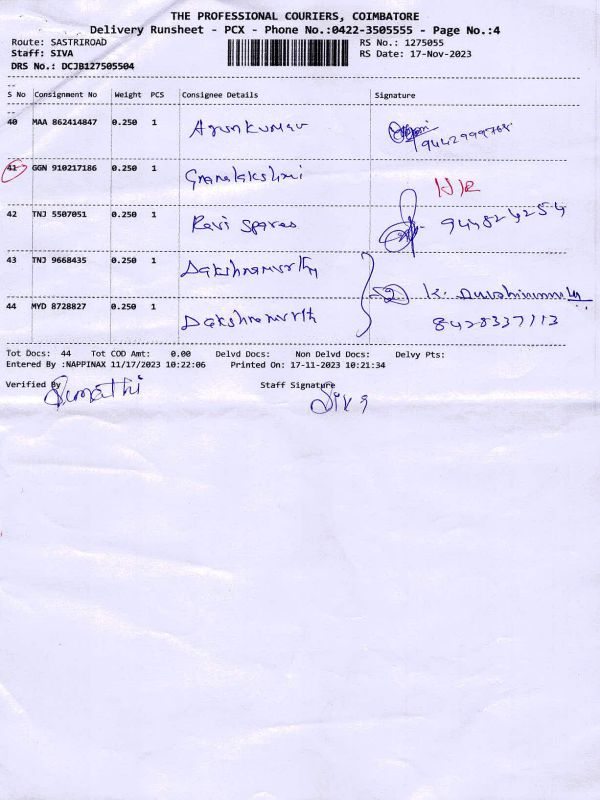 THE PROFESSIONAL COURIERS, COIMBATORE
Delivery Runsheet - PCX - Phone No.:0422-3505555 - Page No.:4
Route: SASTRIROAD RS No.: 1275055
Staff: SIVA RS Date: 17-Nov-2023
DRS No.: DCJB127505504
S No Consignment No Weight PCS Consignee Details Signature
40 MAA 862414847 0.250 1 Arunkumar
9442999768
41 GGN 910217186 0.250 1 Gnanalakshmi
42 TNJ 5507051 0.250 1 Ravi Spares 9448246254
43 TNJ 9668435 0.250 1 Dakshnamurthy
44 MYD 8728827 0.250 1 Dakshnamurth 8428337113
Tot Docs: 44 Tot COD Amt: 0.00 Delvd Docs: Non Delvd Docs: Delvy Pts:
Entered By :NAPPINAX 11/17/2023 10:22:06 Printed On: 17-11-2023 10:21:34
Verified By Staff Signature
Sumathi Siva